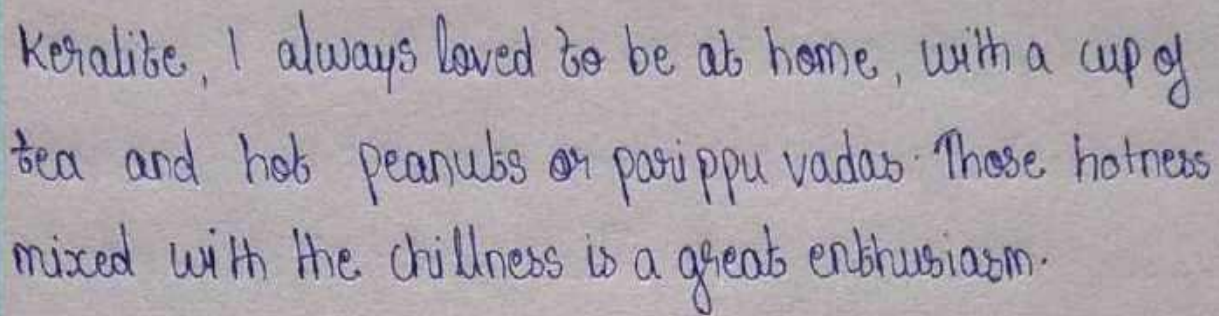 Keralite, I always loved to be at home, with a cup of
tea and hot peanuts or parippu vadas. Those hotness
mixed with the chillness is a great enthusiasm.